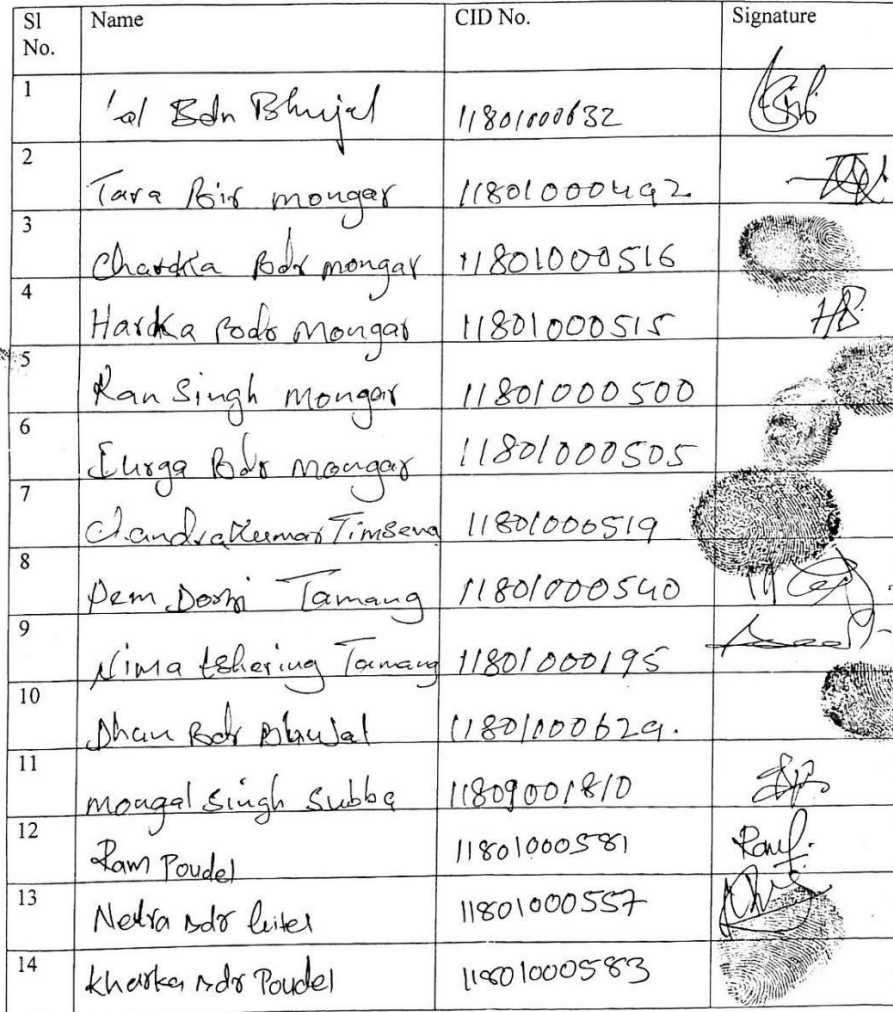 Sl No. Name CID No. Signature
1 Bdr Bhujel 11801000632
2 Tara Bir mongar 11801000492
3 Chardka Bdr mongar 11801000516
4 Hardka Bodr Mongar 11801000515 HB
5 Ran Singh mongar 11801000500
6 Durga Bdr mongar 11801000505
7 Chandra Kumar Timsena 11801000519
8 Pem Dorji Tamang 11801000540
9 Nima tshering Tamang 11801000195
10 Dhan Bdr Bhujal 11801000629.
11 mongal Singh Subba 11809001810
12 Ram Poudel 11801000581 Ram
13 Netra Bdr 11801000557
14 kharka Bdr Poudel 11801000583